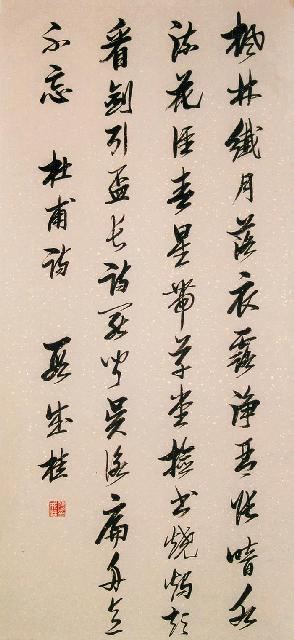 楓林纖月落衣露淨琴張暗水
流花徑春星帶草堂檢書燒燭短
看劍引盃長詩罷聞吳詠扁舟意
不忘 杜甫詩 段成桂